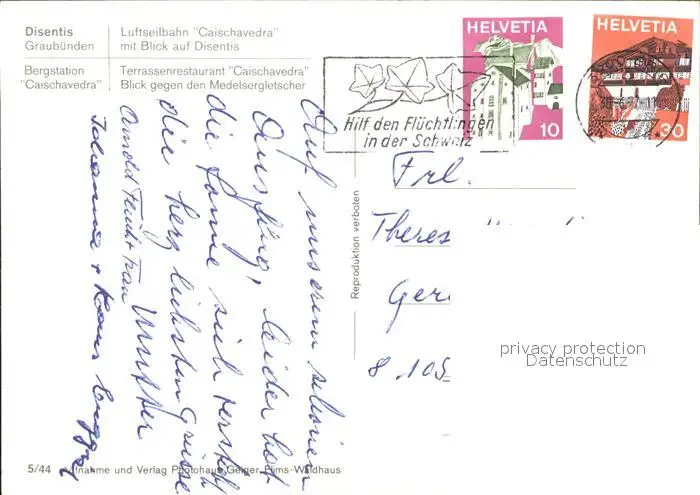 Disentis
Graubünden
Luftseilbahn "Caischavedra"
mit Blick auf Disentis
Bergstation
"Caischavedra"
Terrassenrestaurant "Caischavedra"
Blick gegen den Medelsergletscher
HELVETIA
10
HELVETIA
30
Hilf den Flüchtlingen
in der Schweiz
Auf unserem schönen
Ausflug, leider hat
die Sonne sich versteckt
die herzliebsten Grüsse
Mutter
Arnold Frau
Johanna +
Reproduktion verboten
Frl.
Theres
Ger
8105
privacy protection
Datenschutz
5/44 Aufnahme und Verlag Photohaus Geiger, Flims-Waldhaus